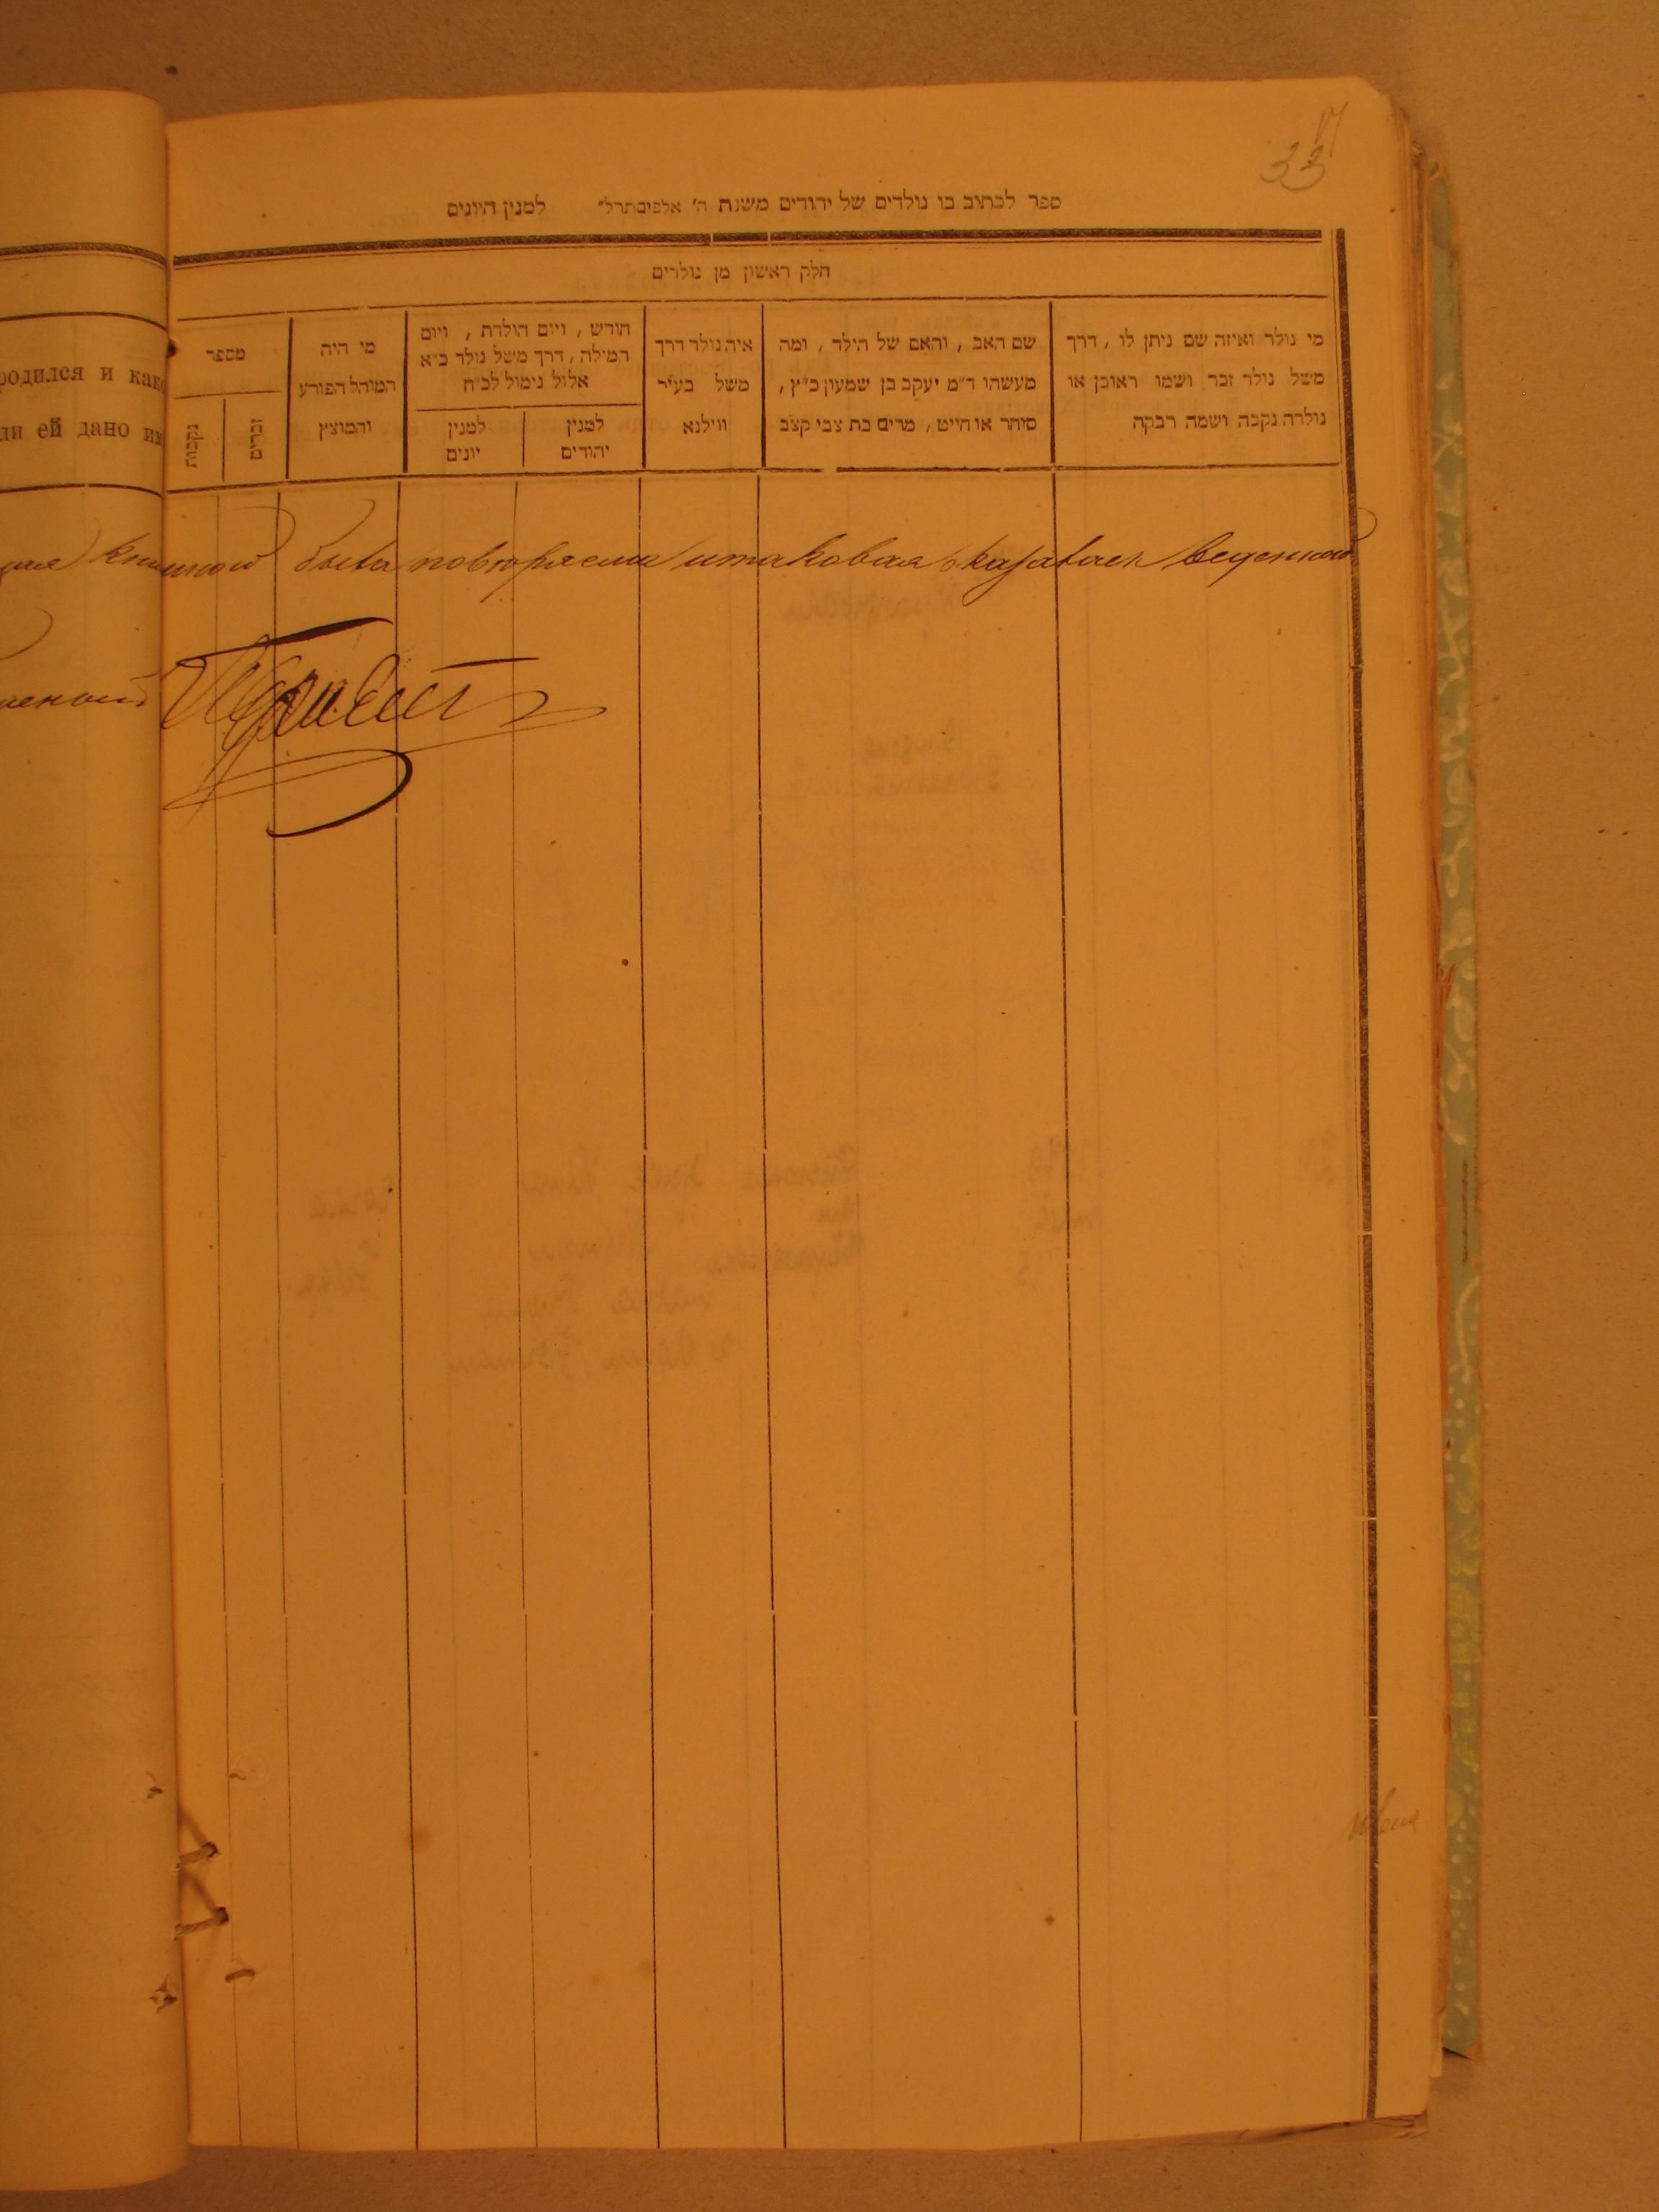 33
ספר לכתוב בו נולדים של יהודים משנת ה' אלפים תרל" למנין היונים
חלק ראשון מן נולדים
מי נולד ואיזה שם ניתן לו, דרך
משל נולד זכר ושמו ראובן או
נולדה נקבה ושמה רבקה
שם האב, והאם של הילד, ומה
מעשהו ד"מ יעקב בן שמעון כ"ץ,
סוחר או חייט, מרים בת צבי קצב
איה נולד דרך
משל בעיר
ווילנא
חודש, ויום הולדת, ויום
המילה, דרך משל נולד כ"א
אלול נימול לכ"ח
למנין
יהודים
למנין
יונים
מי היה
המוהל הפורע
והמוצץ
מספר
זכרים
נקבות
родился и как
ли ей дано им
была повторяема и таковая оказалась веденной